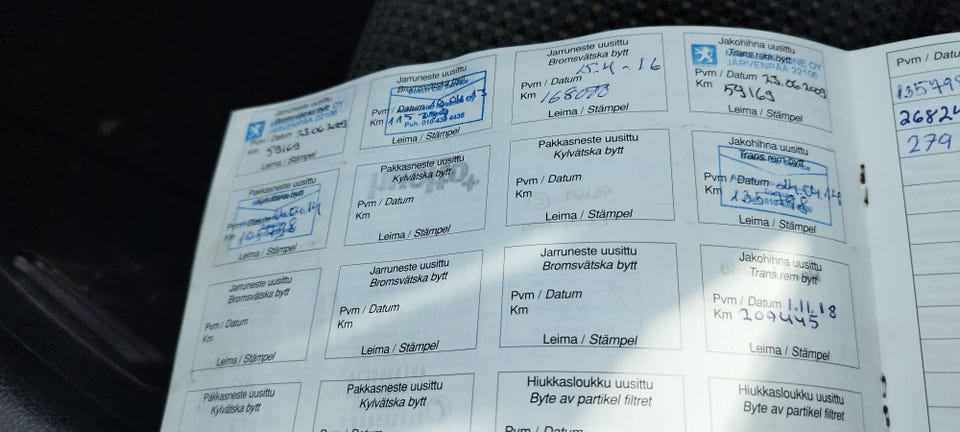 Jarruneste uusittu
Bromsvätska bytt
JÄRVENPÄÄ 22106
Pvm / Datum 23.06.2009
Km 59169
Leima / Stämpel
Jarruneste uusittu
Bromsvätska bytt
Pvm / Datum
Km
Puh. 010-439 4430
Leima / Stämpel
Jarruneste uusittu
Bromsvätska bytt
Pvm / Datum 15.4-16
Km
Leima / Stämpel
Jakohihna uusittu
Trans.rem bytt
JÄRVENPÄÄ 22106
Pvm / Datum 23.06.2009
Km 59169
Leima / Stämpel
Pakkasneste uusittu
Kylvätska bytt
Pvm / Datum 24.04.14
Km
Leima / Stämpel
Pakkasneste uusittu
Kylvätska bytt
Pvm / Datum
Km
Leima / Stämpel
Pakkasneste uusittu
Kylvätska bytt
Pvm / Datum
Km
Leima / Stämpel
Jakohihna uusittu
Trans.rem bytt
Pvm / Datum 24.04.14
Km 135798
Leima / Stämpel
Jarruneste uusittu
Bromsvätska bytt
Pvm / Datum
Km
Leima / Stämpel
Jarruneste uusittu
Bromsvätska bytt
Pvm / Datum
Km
Leima / Stämpel
Jarruneste uusittu
Bromsvätska bytt
Pvm / Datum
Km
Leima / Stämpel
Jakohihna uusittu
Trans.rem bytt
Pvm / Datum 1.11.18
Km 209445
Leima / Stämpel
Pakkasneste uusittu
Kylvätska bytt
Pakkasneste uusittu
Kylvätska bytt
Pvm / Datum
Hiukkasloukku uusittu
Byte av partikel filtret
Pvm / Datum
Hiukkasloukku uusittu
Byte av partikel filtret
Pvm / Datum
Pvm / Datum
135798
26824
279